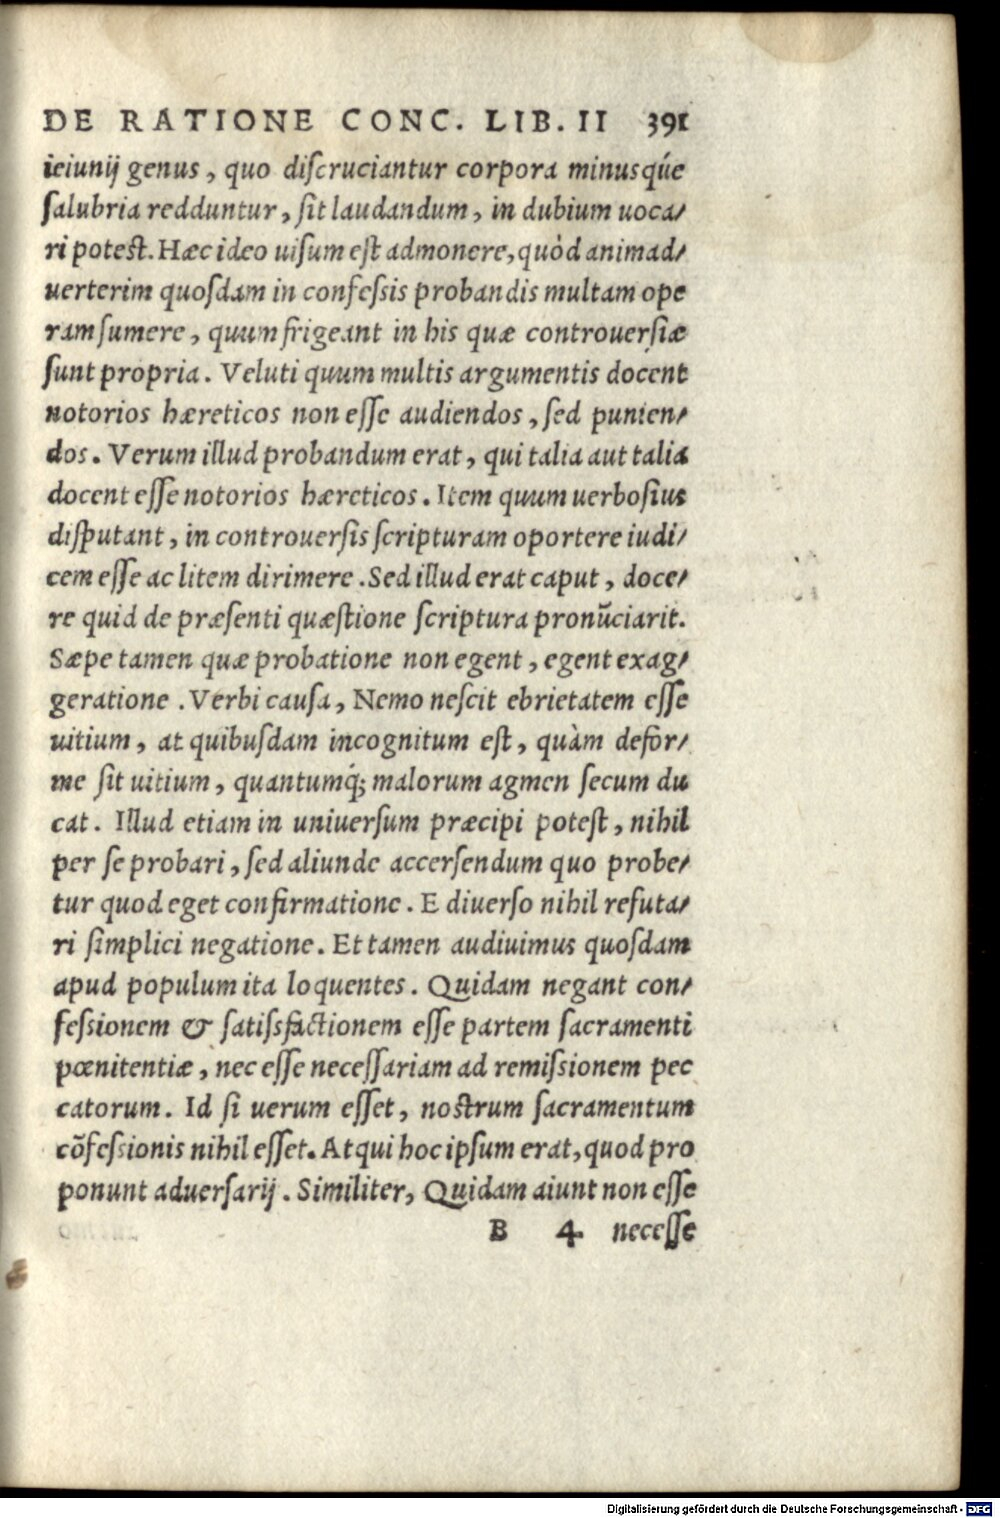 DE RATIONE CONC. LIB. II 391
ieiunij genus, quo diſcruciantur corpora minusq́ue
ſalubria redduntur, ſit laudandum, in dubium uoca/
ri poteſt. Hæc ideo uiſum eſt admonere, quòd animad/
uerterim quoſdam in confeſsis probandis multam ope
ram ſumere, quum frigeant in his quæ controuerſiæ
ſunt propria. Veluti quum multis argumentis docent
notorios hæreticos non eſſe audiendos, ſed punien/
dos. Verum illud probandum erat, qui talia aut talia
docent eſſe notorios hæreticos. Item quum uerboſius
diſputant, in controuerſis ſcripturam oportere iudi/
cem eſſe ac litem dirimere. Sed illud erat caput, doce/
re quid de præſenti quæſtione ſcriptura pronūciarit.
Sæpe tamen quæ probatione non egent, egent exag/
geratione. Verbi cauſa, Nemo neſcit ebrietatem eſſe
uitium, at quibuſdam incognitum eſt, quàm defor/
me ſit uitium, quantumq́; malorum agmen ſecum du
cat. Illud etiam in uniuerſum præcipi poteſt, nihil
per ſe probari, ſed aliunde accerſendum quo probe/
tur quod eget confirmatione. E diuerſo nihil refuta/
ri ſimplici negatione. Et tamen audiuimus quoſdam
apud populum ita loquentes. Quidam negant con/
feſsionem & ſatisfactionem eſſe partem ſacramenti
pœnitentiæ, nec eſſe neceſſariam ad remiſsionem pec
catorum. Id ſi uerum eſſet, noſtrum ſacramentum
cōfeſsionis nihil eſſet. Atqui hoc ipſum erat, quod pro
ponunt aduerſarij. Similiter, Quidam aiunt non eſſe
B 4 neceſſe
Digitalisierung gefördert durch die Deutsche Forschungsgemeinschaft - DFG